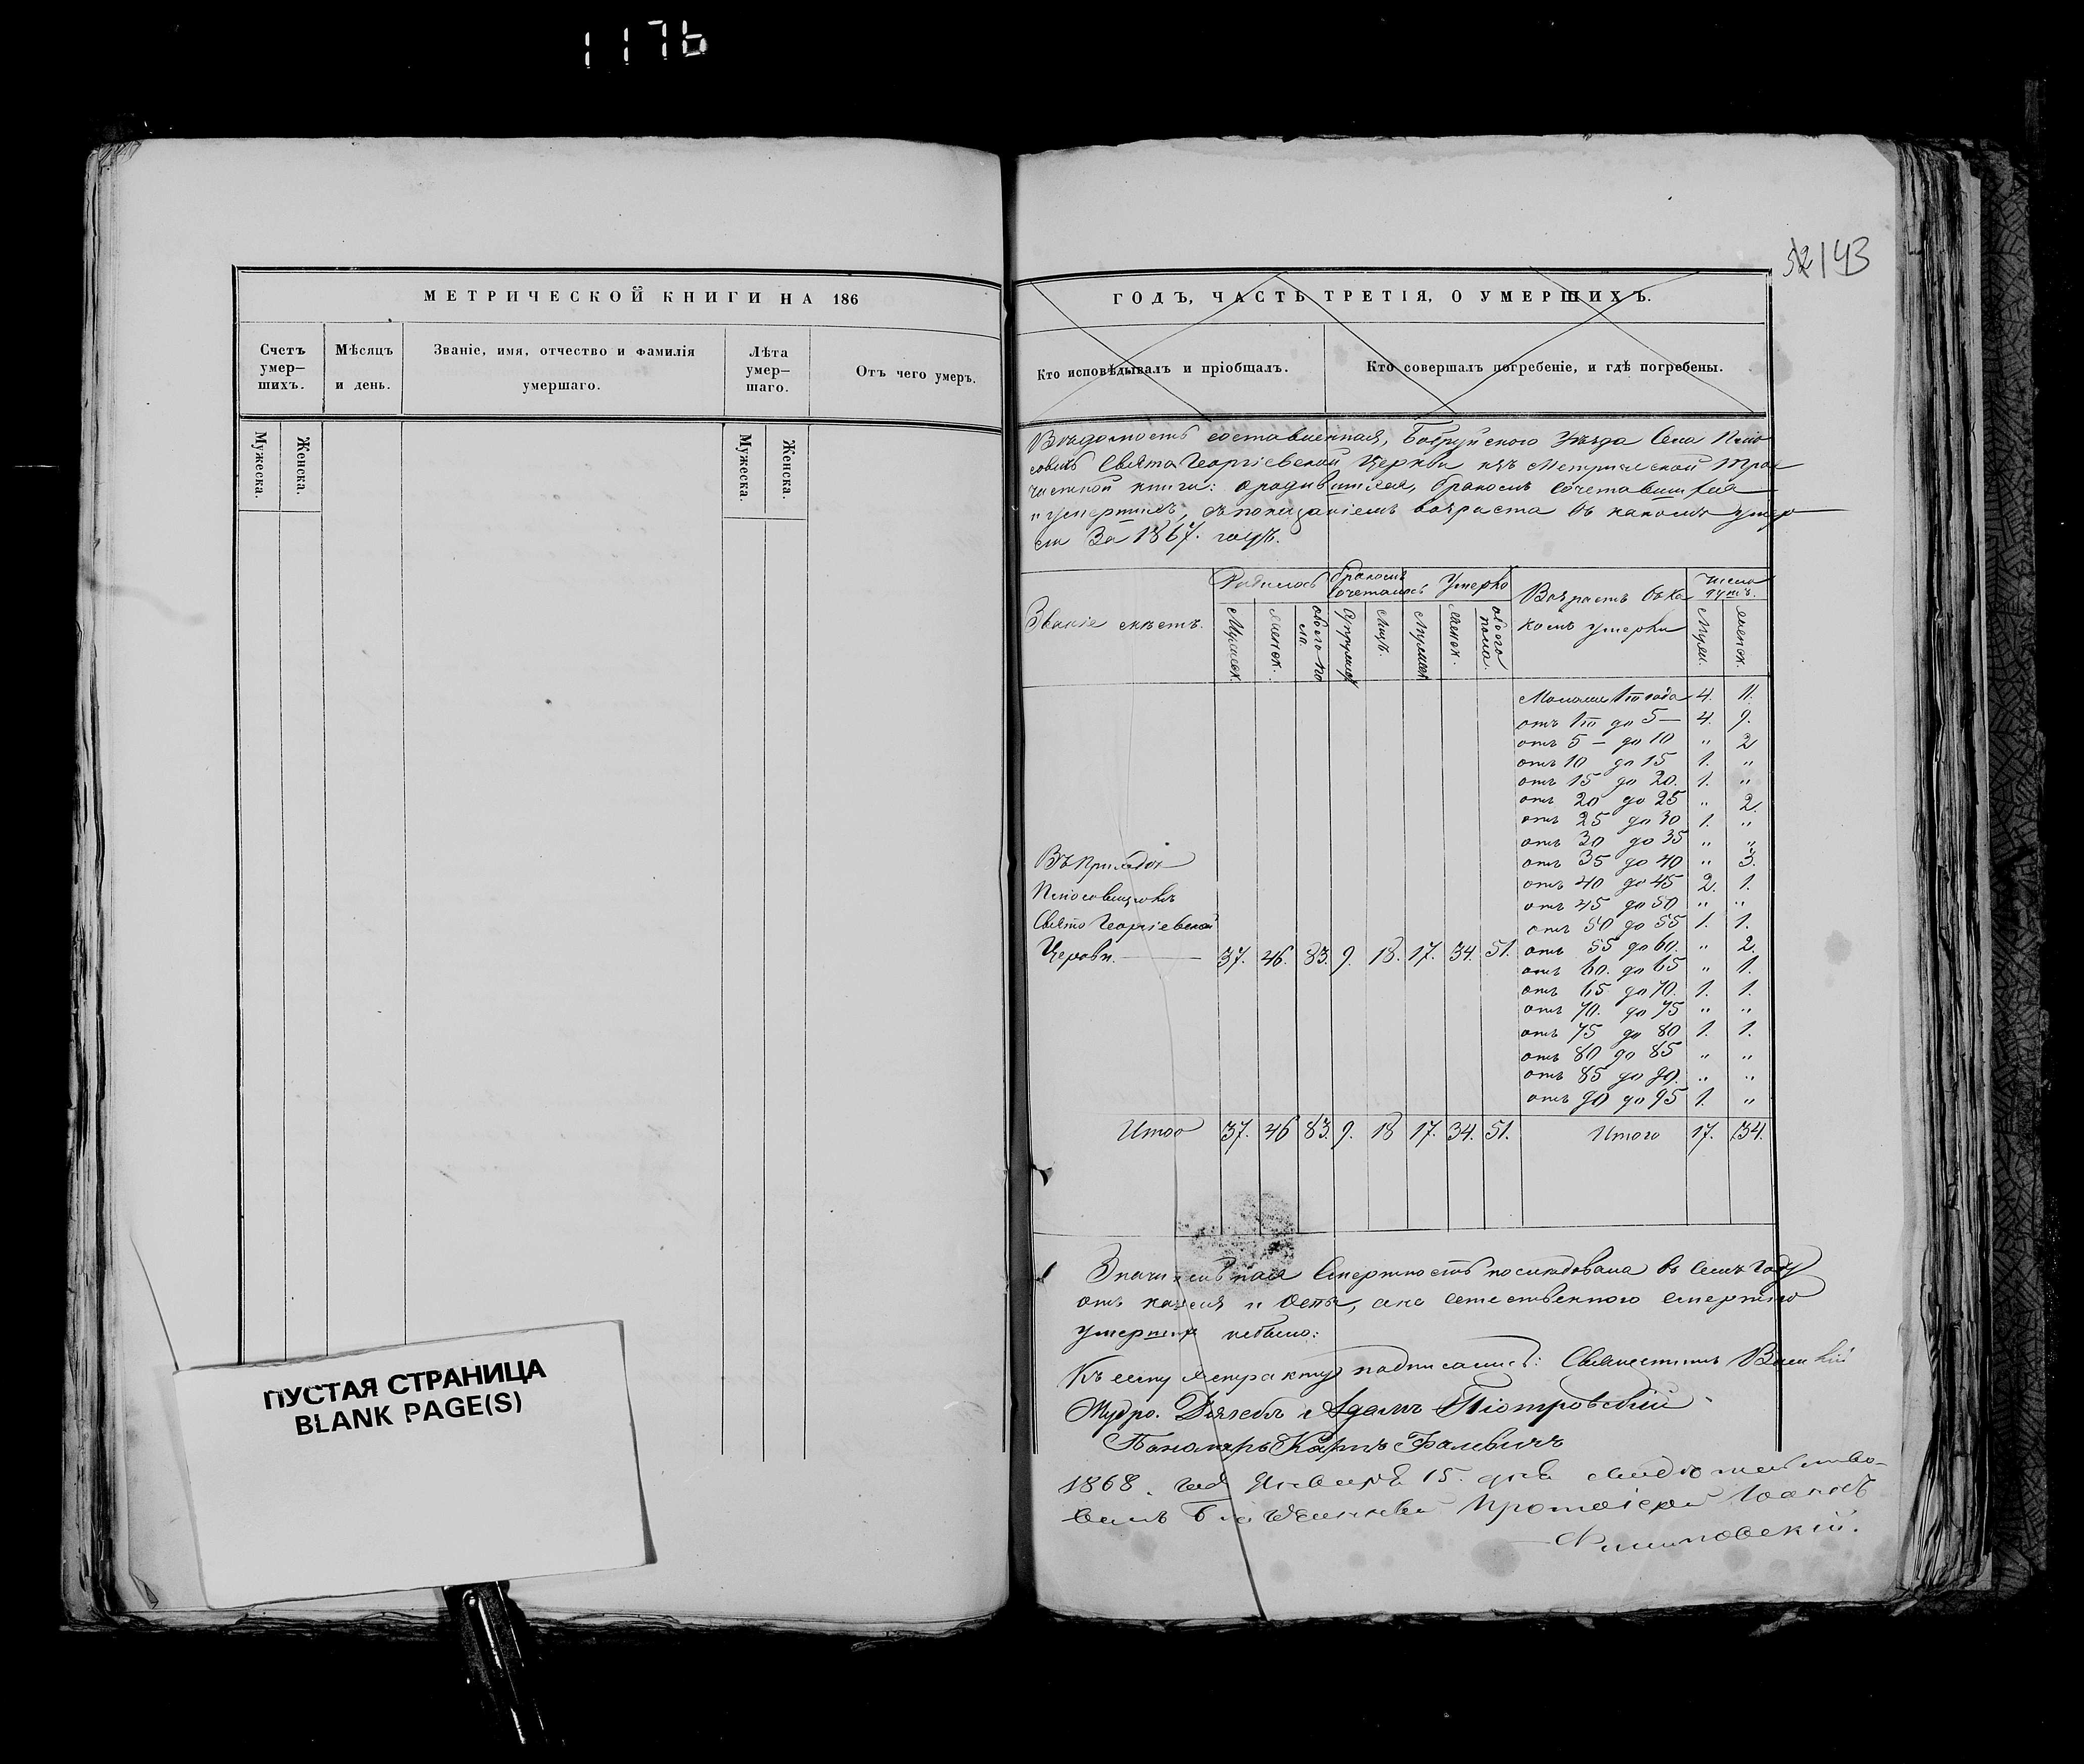 1176
143
МЕТРИЧЕСКОЙ КНИГИ НА 186
Счетъ умер-шихъ.
Мѣсяцъ и день.
Званіе, имя, отчество и фамилія умершаго.
Лѣта умер-шаго.
Отъ чего умеръ.
Мужеска.
Женска.
Мужеска.
Женска.
ПУСТАЯ СТРАНИЦА
BLANK PAGE(S)
ГОДЪ, ЧАСТЬ ТРЕТІЯ, О УМЕРШИХЪ.
Кто исповѣдывалъ и пріобщалъ.
Кто совершалъ погребеніе, и гдѣ погребены.
Вѣдомость составленная, Бобруйского Уѣзда Села
Свято Георгіевской Церкви изъ Метрической трое
частной книги: о родившихся, бракомъ сочетавшихся
и умершихъ, съ показаніемъ возраста въ какомъ умер
ли За 1867. годъ.
Званіе мѣстъ.
Родилось
Бракомъ сочеталось
Умерло
Возрастъ въ ка
комъ умерли
Число душъ.
Мужеск.
женск.
обоего по
ла.
Супружес
Лицъ.
Мужеск
женск.
обоего
пола.
Муж.
женск.
Моложе 1го года 4. 11.
отъ 1го до 5 — 4. 9.
отъ 5 — до 10 " 2
отъ 10 до 15 1. "
отъ 15 до 20. 1. "
отъ 20 до 25 " 2.
отъ 25 до 30 1. "
отъ 30 до 35 " "
отъ 35 до 40 " 3.
отъ 40 до 45 2. 1.
отъ 45 до 50 " "
отъ 50 до 55 1. 1.
Въ приходѣ
Свято Георгіевской
Церкви. 37. 46. 83. 9. 18. 17. 34. 51. отъ 55 до 60. " 2.
отъ 60. до 65 " 1.
отъ 65 до 70. 1. 1.
отъ 70. до 75 " "
отъ 75 до 80 1. 1.
отъ 80 до 85 " "
отъ 85 до 90. " "
отъ 90 до 95 1. "
Итого 37. 46 83. 9. 18 17. 34. 51. Итого 17. 34.
Значительная Смертность послѣдовала въ семъ Году
отъ кашля и Оспы, а не естественного смертію
умершихъ небыло:
Къ сему экстракту подписались: Священникъ
Адамъ Піотровскій
Панамарь Карпъ Фалевичъ
1868. года Января 15. дня свидѣтельство-
валъ Благочинный Протоіерей Іоаннъ